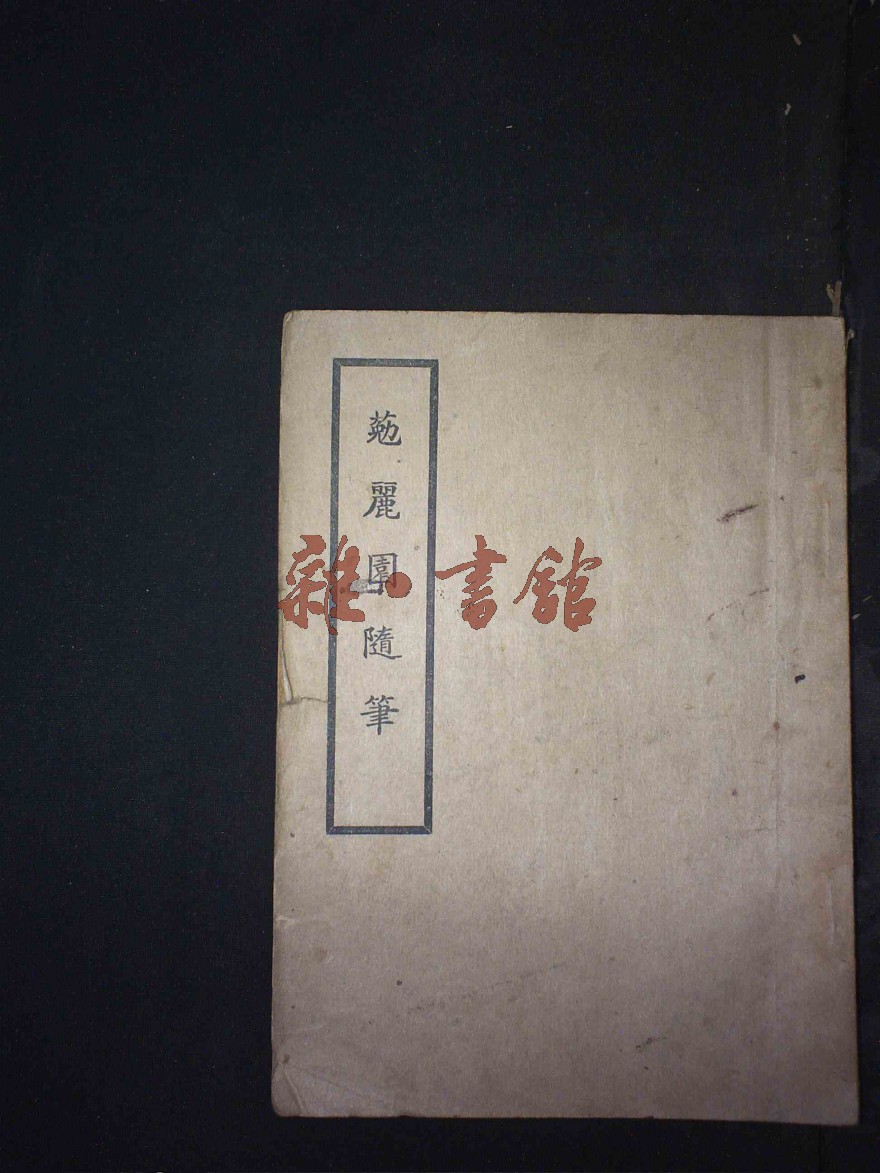 麗園隨筆
雜·書館